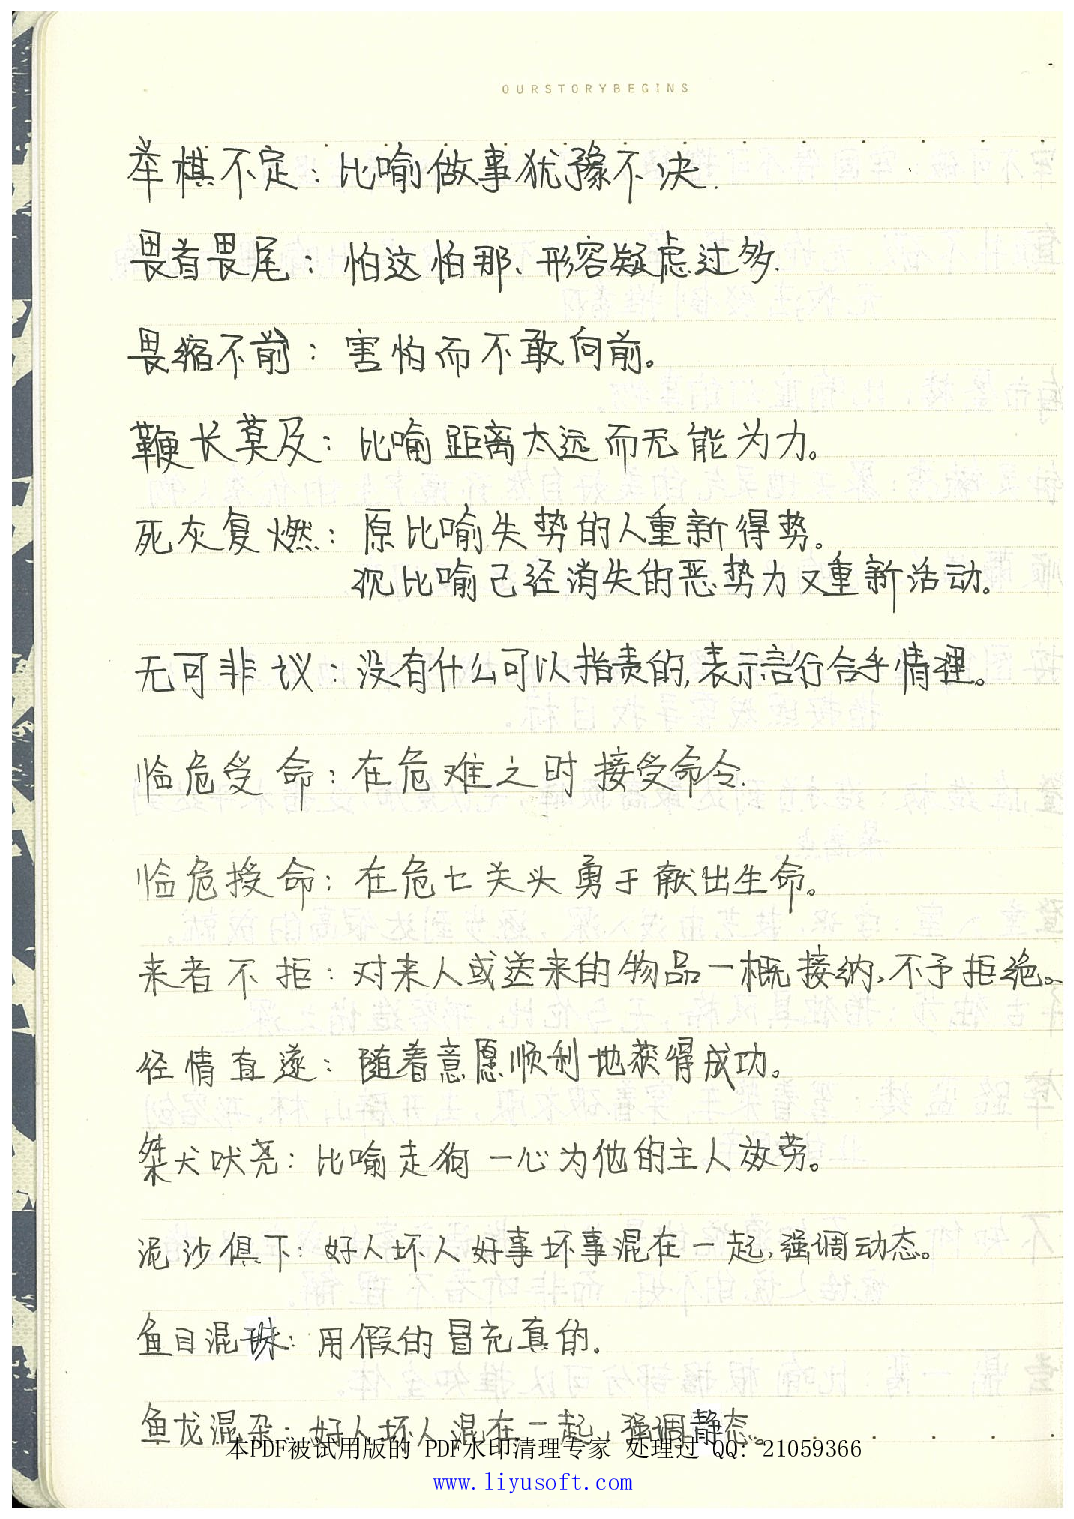 OURSTORYBEGINS
举棋不定：比喻做事犹豫不决.
畏首畏尾：怕这怕那、形容疑虑过多.
畏缩不前：害怕而不敢向前。
鞭长莫及：比喻距离太远而无能为力。
死灰复燃：原比喻失势的人重新得势。
现比喻已经消失的恶势力又重新活动。
无可非议：没有什么可以指责的,表示言行合乎情理。
临危受命：在危难之时接受命令.
临危授命：在危亡关头勇于献出生命。
来者不拒：对来人或送来的物品一概接纳,不予拒绝。
径情直遂：随着意愿顺利地获得成功。
桀犬吠尧：比喻走狗一心为他的主人效劳。
泥沙俱下：好人坏人好事坏事混在一起,强调动态。
鱼目混珠：用假的冒充真的.
鱼龙混杂：好人坏人混在一起,强调静态。
本PDF被试用版的 PDF水印清理专家 处理过 QQ: 21059366
www.liyusoft.com